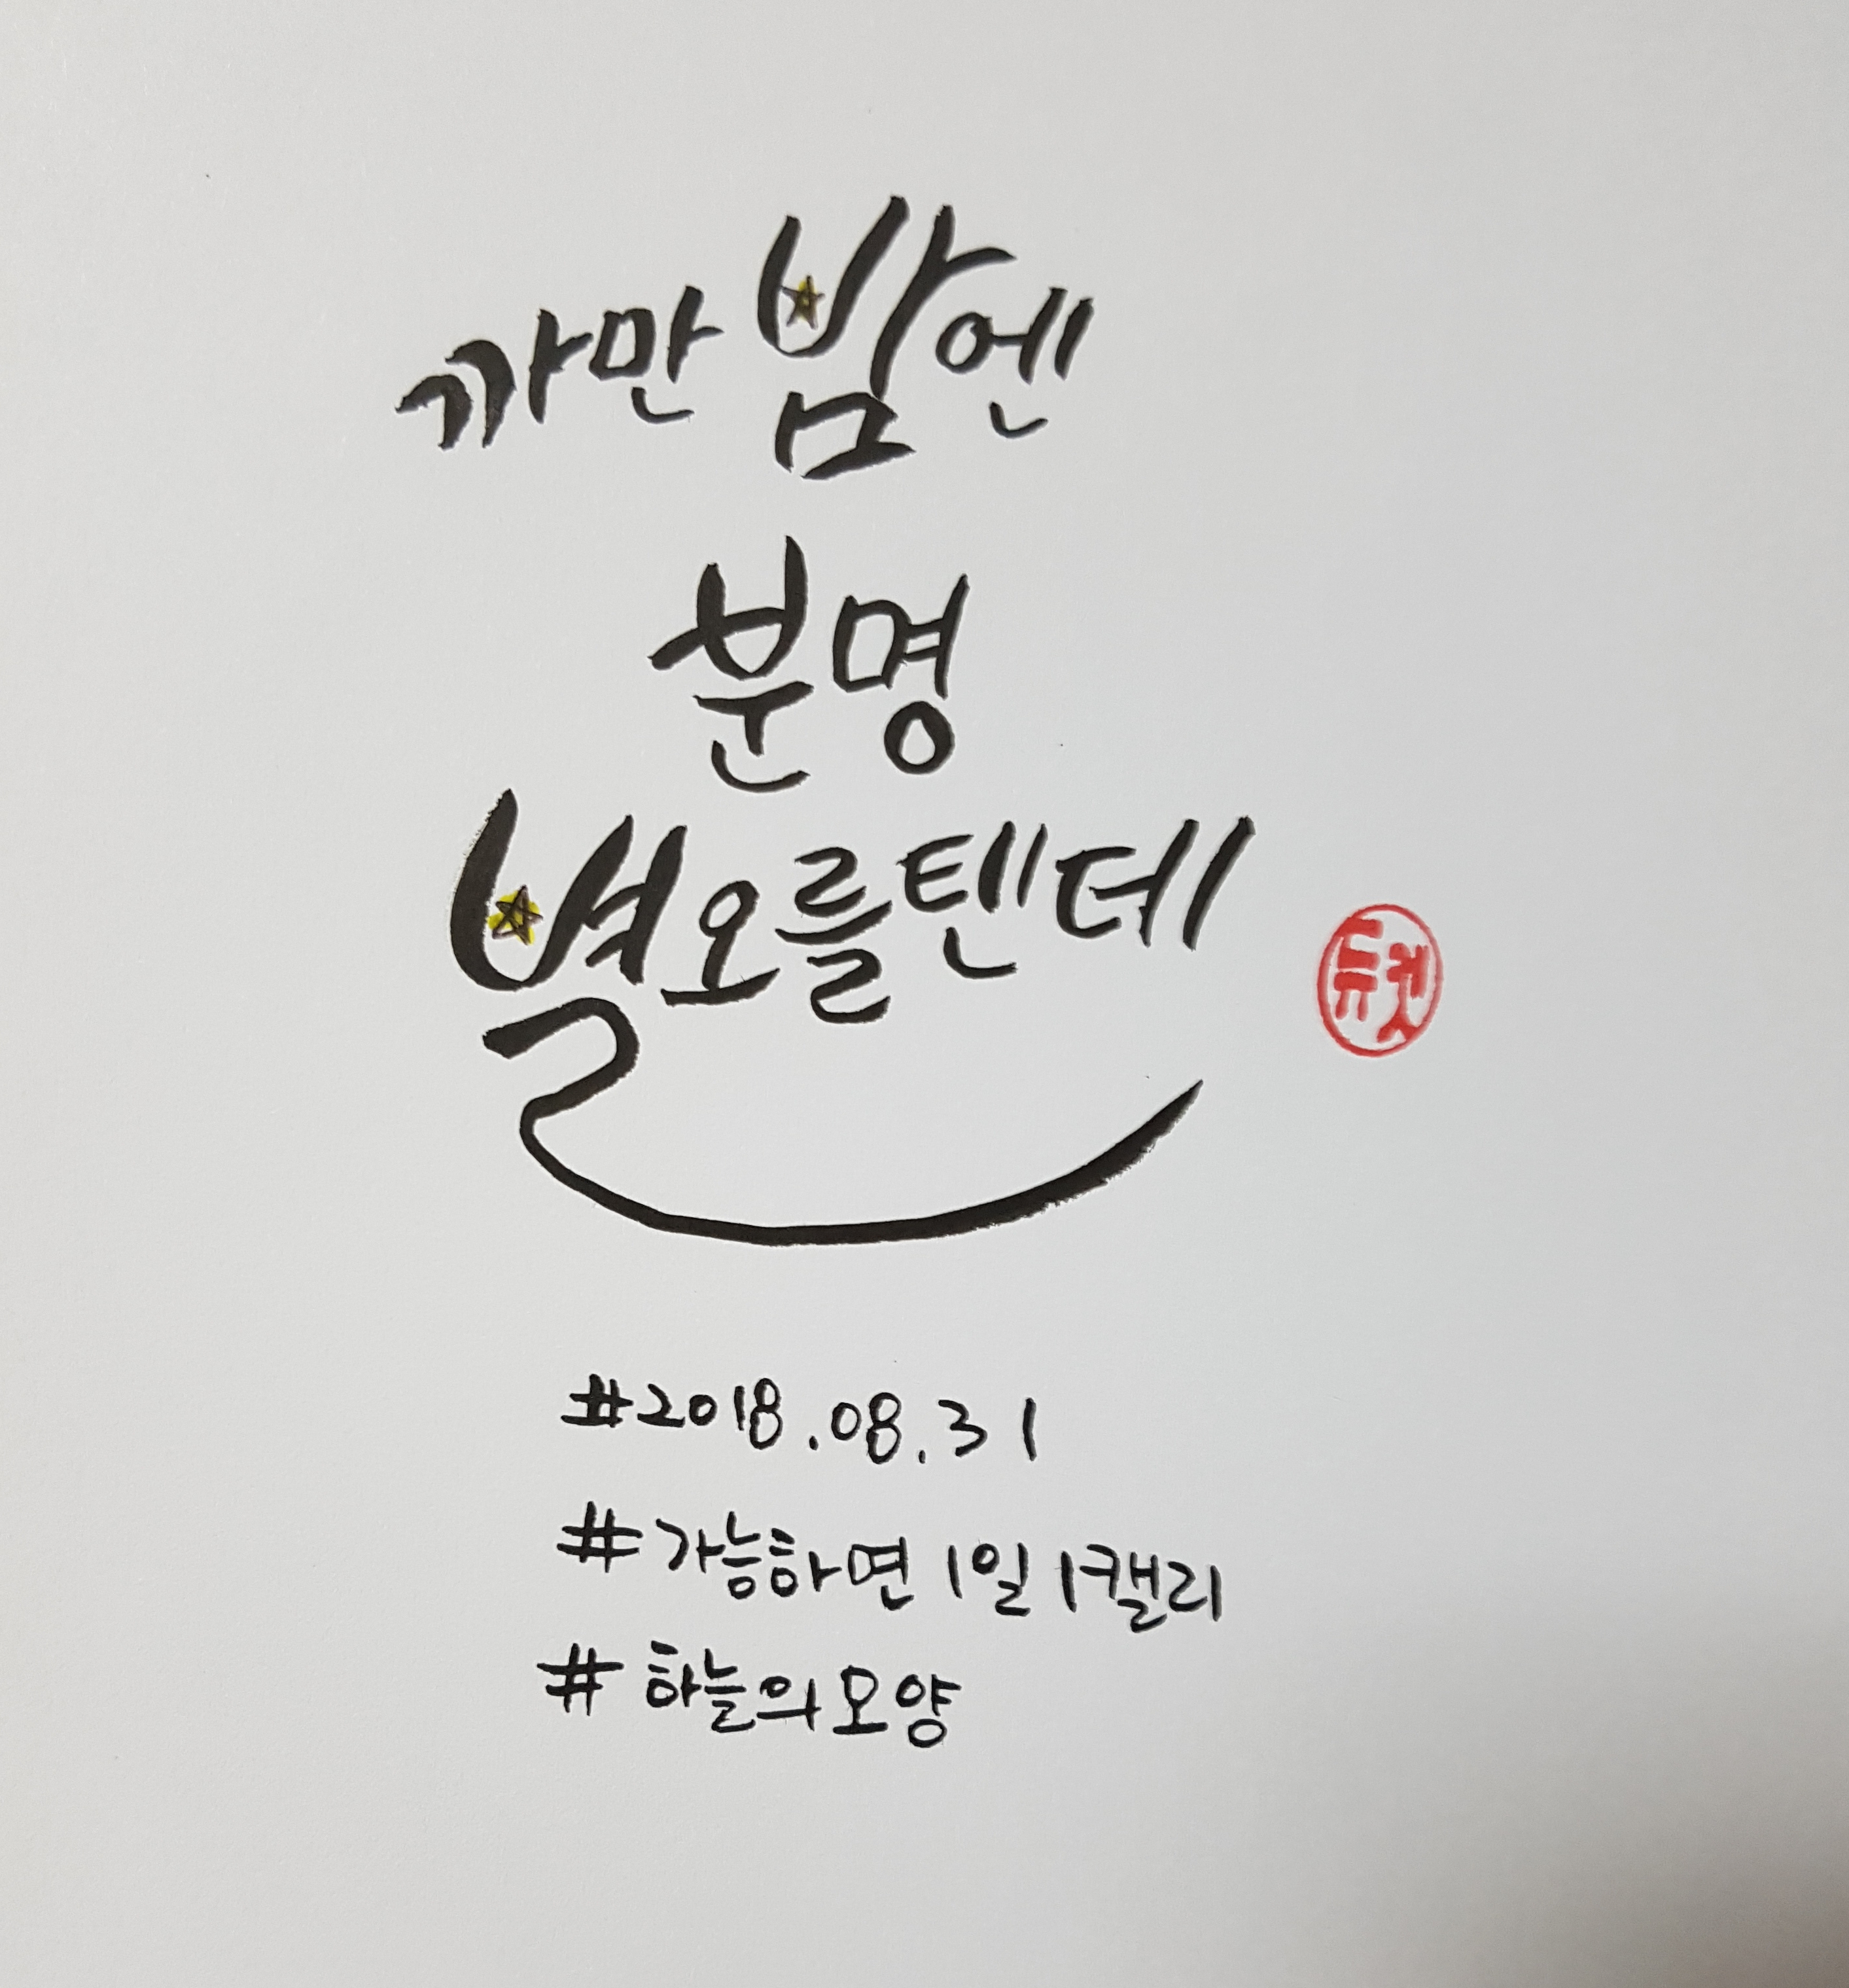 까만 밤엔
분명
별 오를텐데
#2018.08.31
#가능하면 1일 1캘리
#하늘의모양